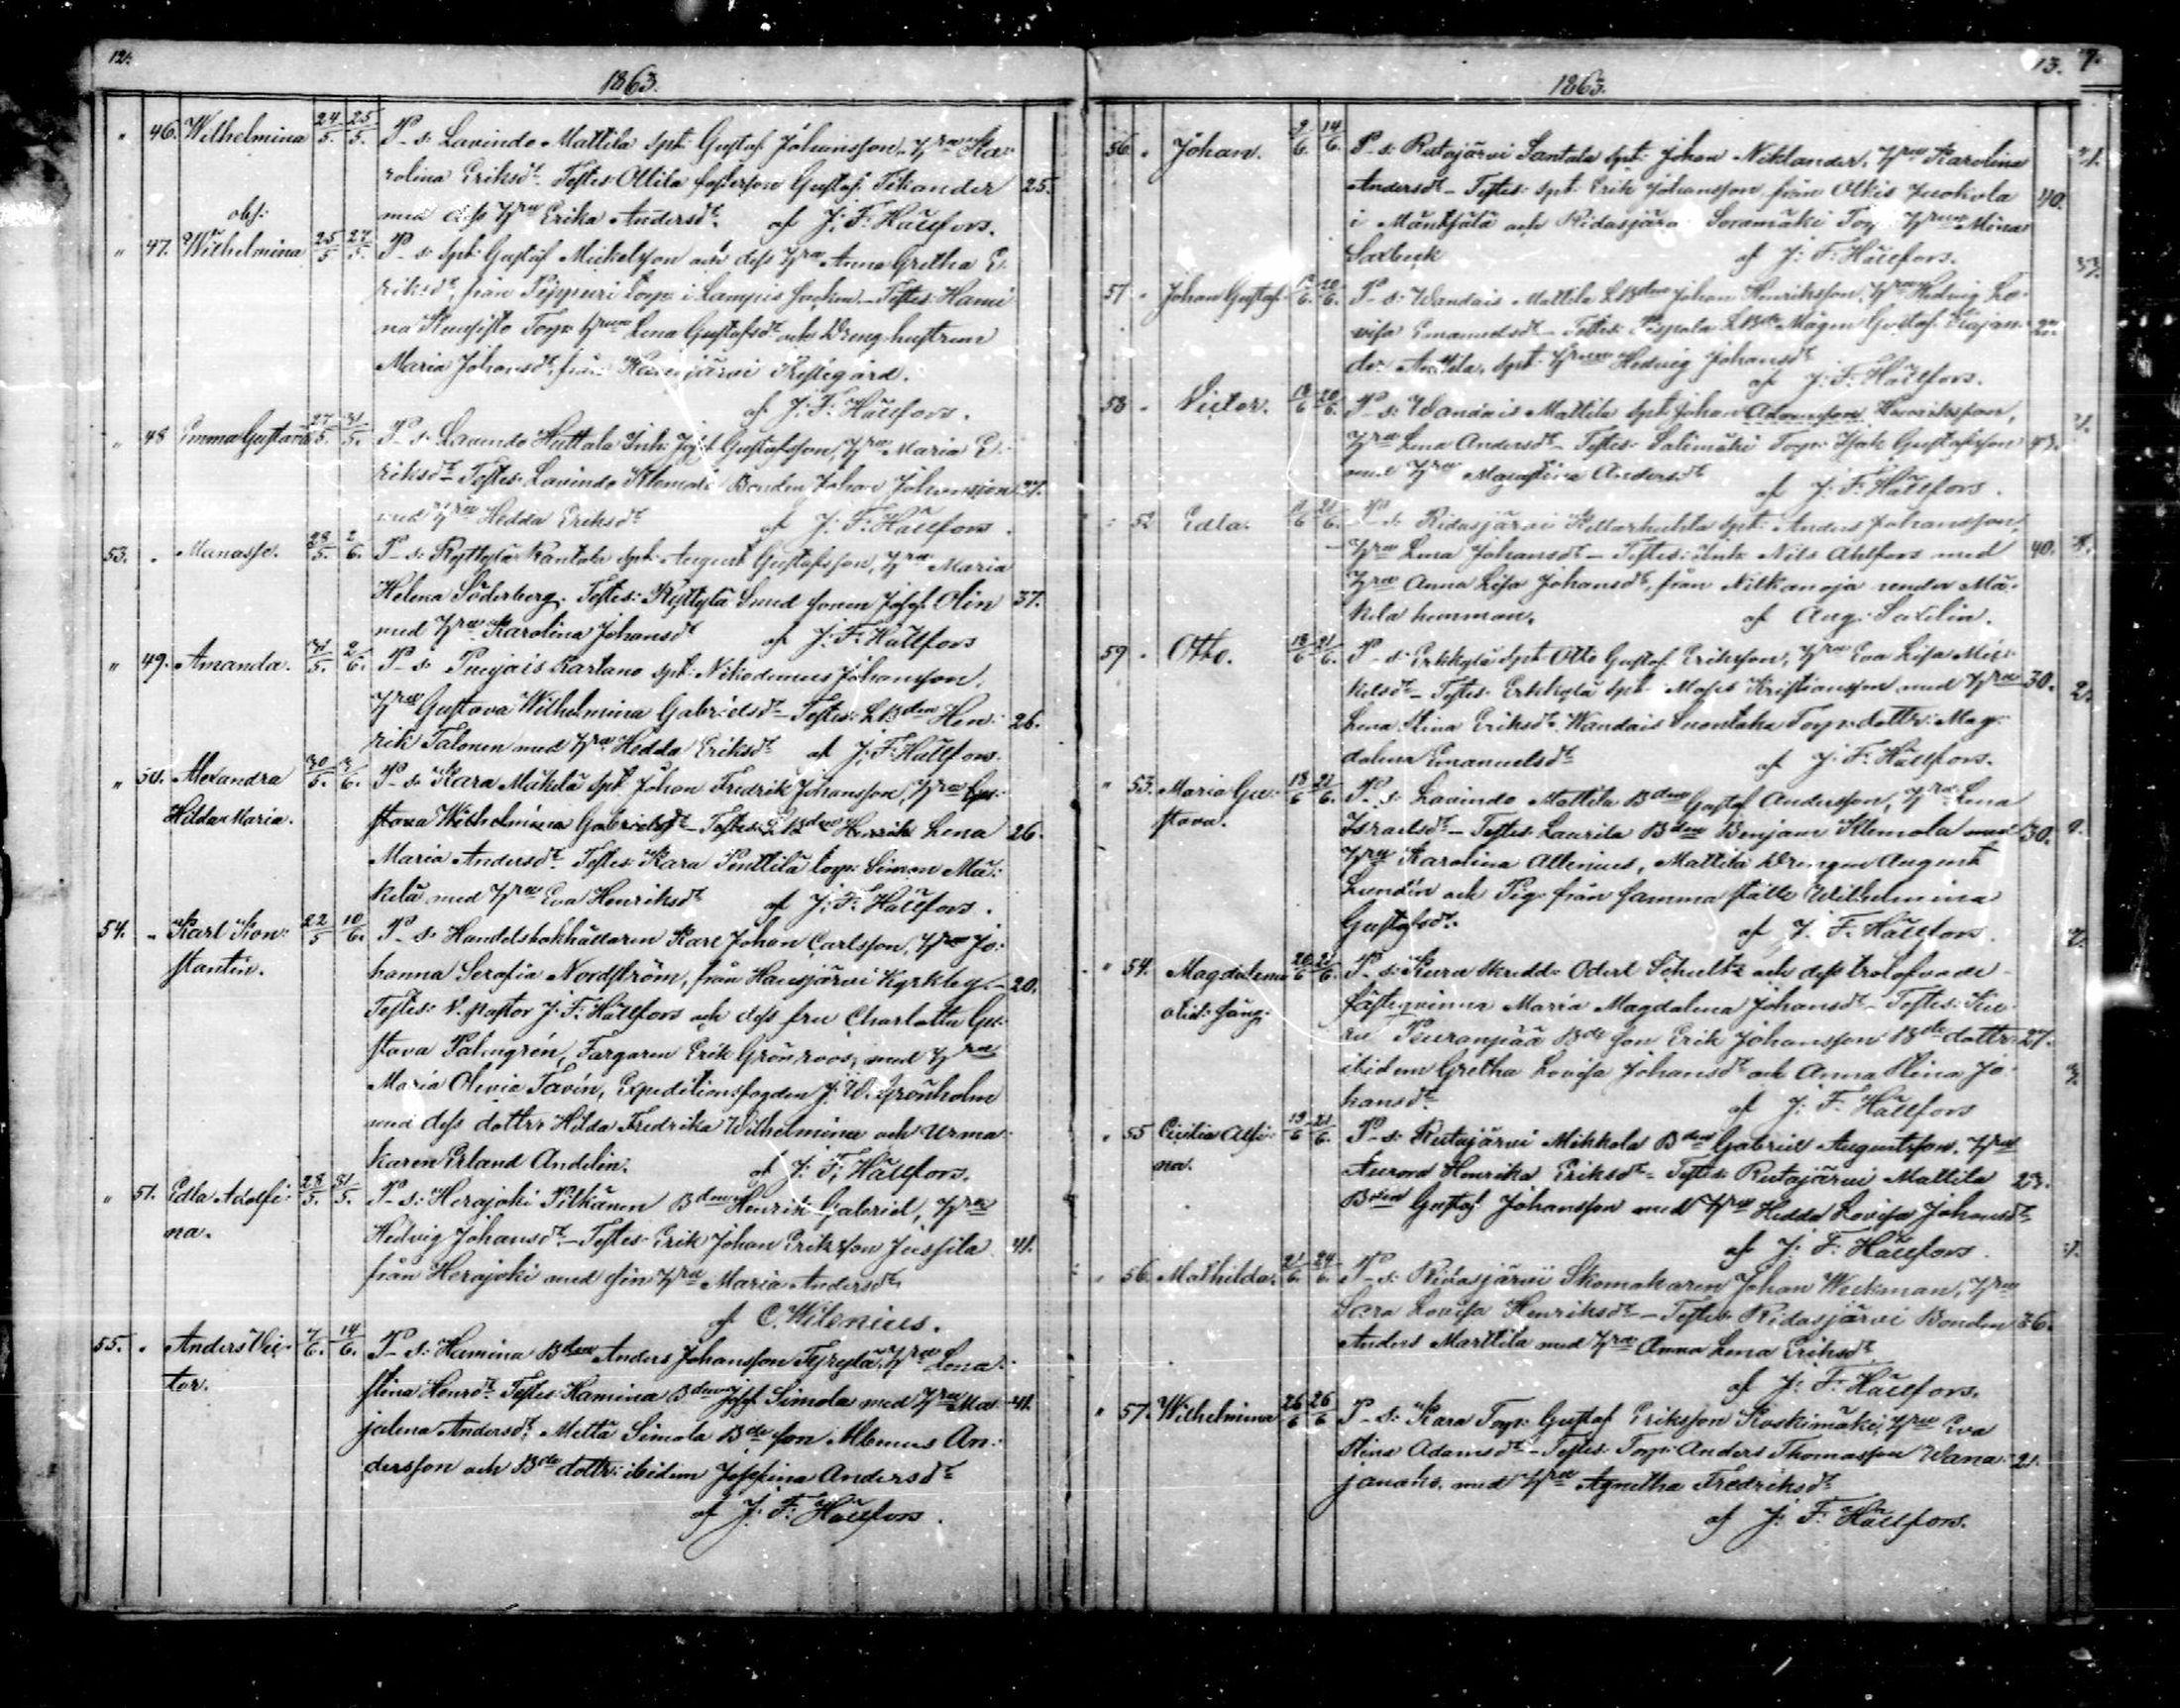 12.
1863.
" 46. Wilhelmina 24/5. 25/5. P-s: Lavindo Mattila Spt: Gustaf Johansson, Hru Ka-
rolina Eriksdr. Testes Ollila fosterson Gustaf Tikander 25.
med dess Hru Erika Andersdr. af J: F: Hällfors.
obs:
" 47. Wilhelmina 25/5 27/5. P-s: Spt: Gustaf Mickelsson och dess Hru Anna Gretha E-
riksdr, från torp i Lampis Socken. - Testes: Hami
na Torp: hrun Lena Gustafsdr och Dreng hustrun
Maria Johansdr, från Prestgård.
af J: F: Hällfors.
" 48 Emma Gustava 27/5. 31/5. P-s: Lavindo Huttala Inh: Josef Gustafsson, Hru Maria E-
riksdr Testes: Lavindo Klemola Bonden Johan Johansson 27.
med Hru Hedda Eriksdr af J: F: Hällfors.
53. " Manasse. 28/5. 2/6. P-s: Ryttylä Rantala Spt: August Gustafsson, Hru Maria
Helena Söderberg. Testes: Ryttylä Smed sonen Josef Olin 37.
med Hru Karolina Johansdr af J: F: Hällfors
" 49. Amanda. 31/5. 2/6. P-s: Puujais Kartano Spt: Nikodemus Johansson,
Hru Gustava Wilhelmina Gabrielsdr Testes: LBden Hen- 26.
rik Talonen med Hru Hedda Eriksdr af J: F: Hällfors.
" 50. Alexandra 30/5. 3/6. P-s: Kara Mäkelä Spt: Johan Fredrik Johansson, Hru Gu-
Hilda Maria. stava Wilhelmina Gabrielsdr Testes: LBden Henrik Lena 26.
Maria Andersdr. Testes: Kara Penttilä torp: Simon Mä-
kelä med Hru Eva Henriksdr af J: F: Hällfors.
54. " Karl Kon- 22/5 10/6. P-s: Handelsbokhållaren Karl Johan Carlsson, Hru Jo-
stantin. hanna Serafia Nordström, från Hausjärvi Kyrkby. - 20.
Testes: V. pastor J: F: Hällfors och dess fru Charlotta Gu-
stava Palmgrén, Färgaren Erik Grönroos, med Hru
Maria Olivia Tavén, Expeditionsfogden J: W. Grönholm
med dess dotter Hilda Fredrika Wilhelmina och Urma-
karen Erland Andelin. af J: F: Hällfors.
" 51. Edla Adolfi- 28/5. 31/5. P-s: Herajoki Pitkänen Bden Henrik Gabriel, Hru
na. Hedvig Johansdr. - Testes: Erik Johan Eriksson Jussila 41.
från Herajoki med sin Hru Maria Andersdr
af C. Wilenius.
55. " Anders Vic- 7/6. 14/6. P-s: Hamina Bden Anders Johansson Hru Lena
tor. stina Henrdr. Testes: Hamina Bden Josef Simola med Hru Ma- 41.
jalena Andersdr, Mella Simola Bde son Albinus An-
dersson och Bde dottr: ibidem Josefina Andersdr
af J: F: Hällfors.
13.
1863.
56. " Johan. 9/6. 14/6. P-s: Rutajärvi Santala Spt: Johan Niklander, Hru Karolina
Andersdr - Testes: Spt: Erik Johansson från Ollis Juokola 40.
i Mäntsälä och Ridasjärvi Soramäki Torp: Hrun Mina
Saxbeck af J: F: Hällfors.
57 " Johan Gustaf 12/6. 20/6. P-s: Wandais Mattila LBden Johan Henriksson, Hru Hedvig Lo-
visa Emanuelsdr - Testes: LBde Mågen Gustaf Kajan- 22.
der Anttila, Spt: Hrun Hedvig Johansdr
af J: F: Hällfors.
58 " Victor. 18/6 20/6. P-s: Wandais Mattila Spt: Johan Henriksson,
Hru Lena Andersdr - Testes: Salimäki Torp: Isak Gustafsson 43.
med Hru Majastina Andersdr
af J: F: Hällfors.
" 52 Edla. 11/6 21/6. P-s: Ridasjärvi Kellarhuhta Spt: Anders Johansson,
Hru Lena Johansdr - Testes: Inh: Nils Ahlfors med 40.
Hru Anna Lisa Johansdr, från Nilkanoja under Mä-
kelä hemman. af Aug: Saxelin.
59 " Otto. 18/6 21/6. P-s: Erkkylä Spt: Otto Gustaf Eriksson, Hru Eva Lisa Mic-
kelsdr - Testes: Erkkylä Spt: Moses Kristiansson med Hru 30.
Lena Stina Eriksdr. Wandais Suontaka Torp: dottr: Mag-
dalena Emanuelsdr af J: F: Hällfors.
" 53. Maria Gu- 18/6 21/6. P-s: Lavindo Mattila Bden Gustaf Andersson, Hru Lena
stava. Israelsdr - Testes: Laurila Bden Benjam: Klemola med 30.
Hru Karolina Allenius, Mattila Drengen August
Lundén och Pig: från samma ställe Wilhelmina
Gustafsdr. af J: F: Hällfors.
" 54. Magdalena 20/6 21/6. P-s: Kuru Skredd: Schultz och dess trolofvade
olid: säng: fästeqvinna Maria Magdalena Johansdr - Testes: Ku-
ru Kuranpää Bde son Erik Johansson Bde dottr: 27.
ibidem Gretha Lovisa Johansdr och Anna Stina Jo-
hansdr. af J: F: Hällfors
" 55 Cecilia Alfi- 19/6 21/6. P-s: Rutajärvi Mikkola Bden Gabriel Augustsson, Hru
na. Aurora Henrika Eriksdr - Testes: Rutajärvi Mattila 23.
Bden Gustaf Johansson med Hru Hedda Lovisa Johansdr
af J: F: Hällfors.
" 56. Mathilda. 21/6. 24/6. P-s: Ridasjärvi Skomakaren Johan Weckman, Hru
Sara Lovisa Henriksdr - Testes: Ridasjärvi Bonden 26.
Anders Marttila med Hru Anna Lena Eriksdr
af J: F: Hällfors.
" 57. Wilhelmina 26/6 26/6 P-s: Kara Torp: Gustaf Eriksson Koskimäki, Hru Eva
Stina Adamsdr - Testes: Torp: Anders Thomasson Wana- 21.
janaho, med Hru Agnetha Fredriksdr
af J: F: Hällfors.